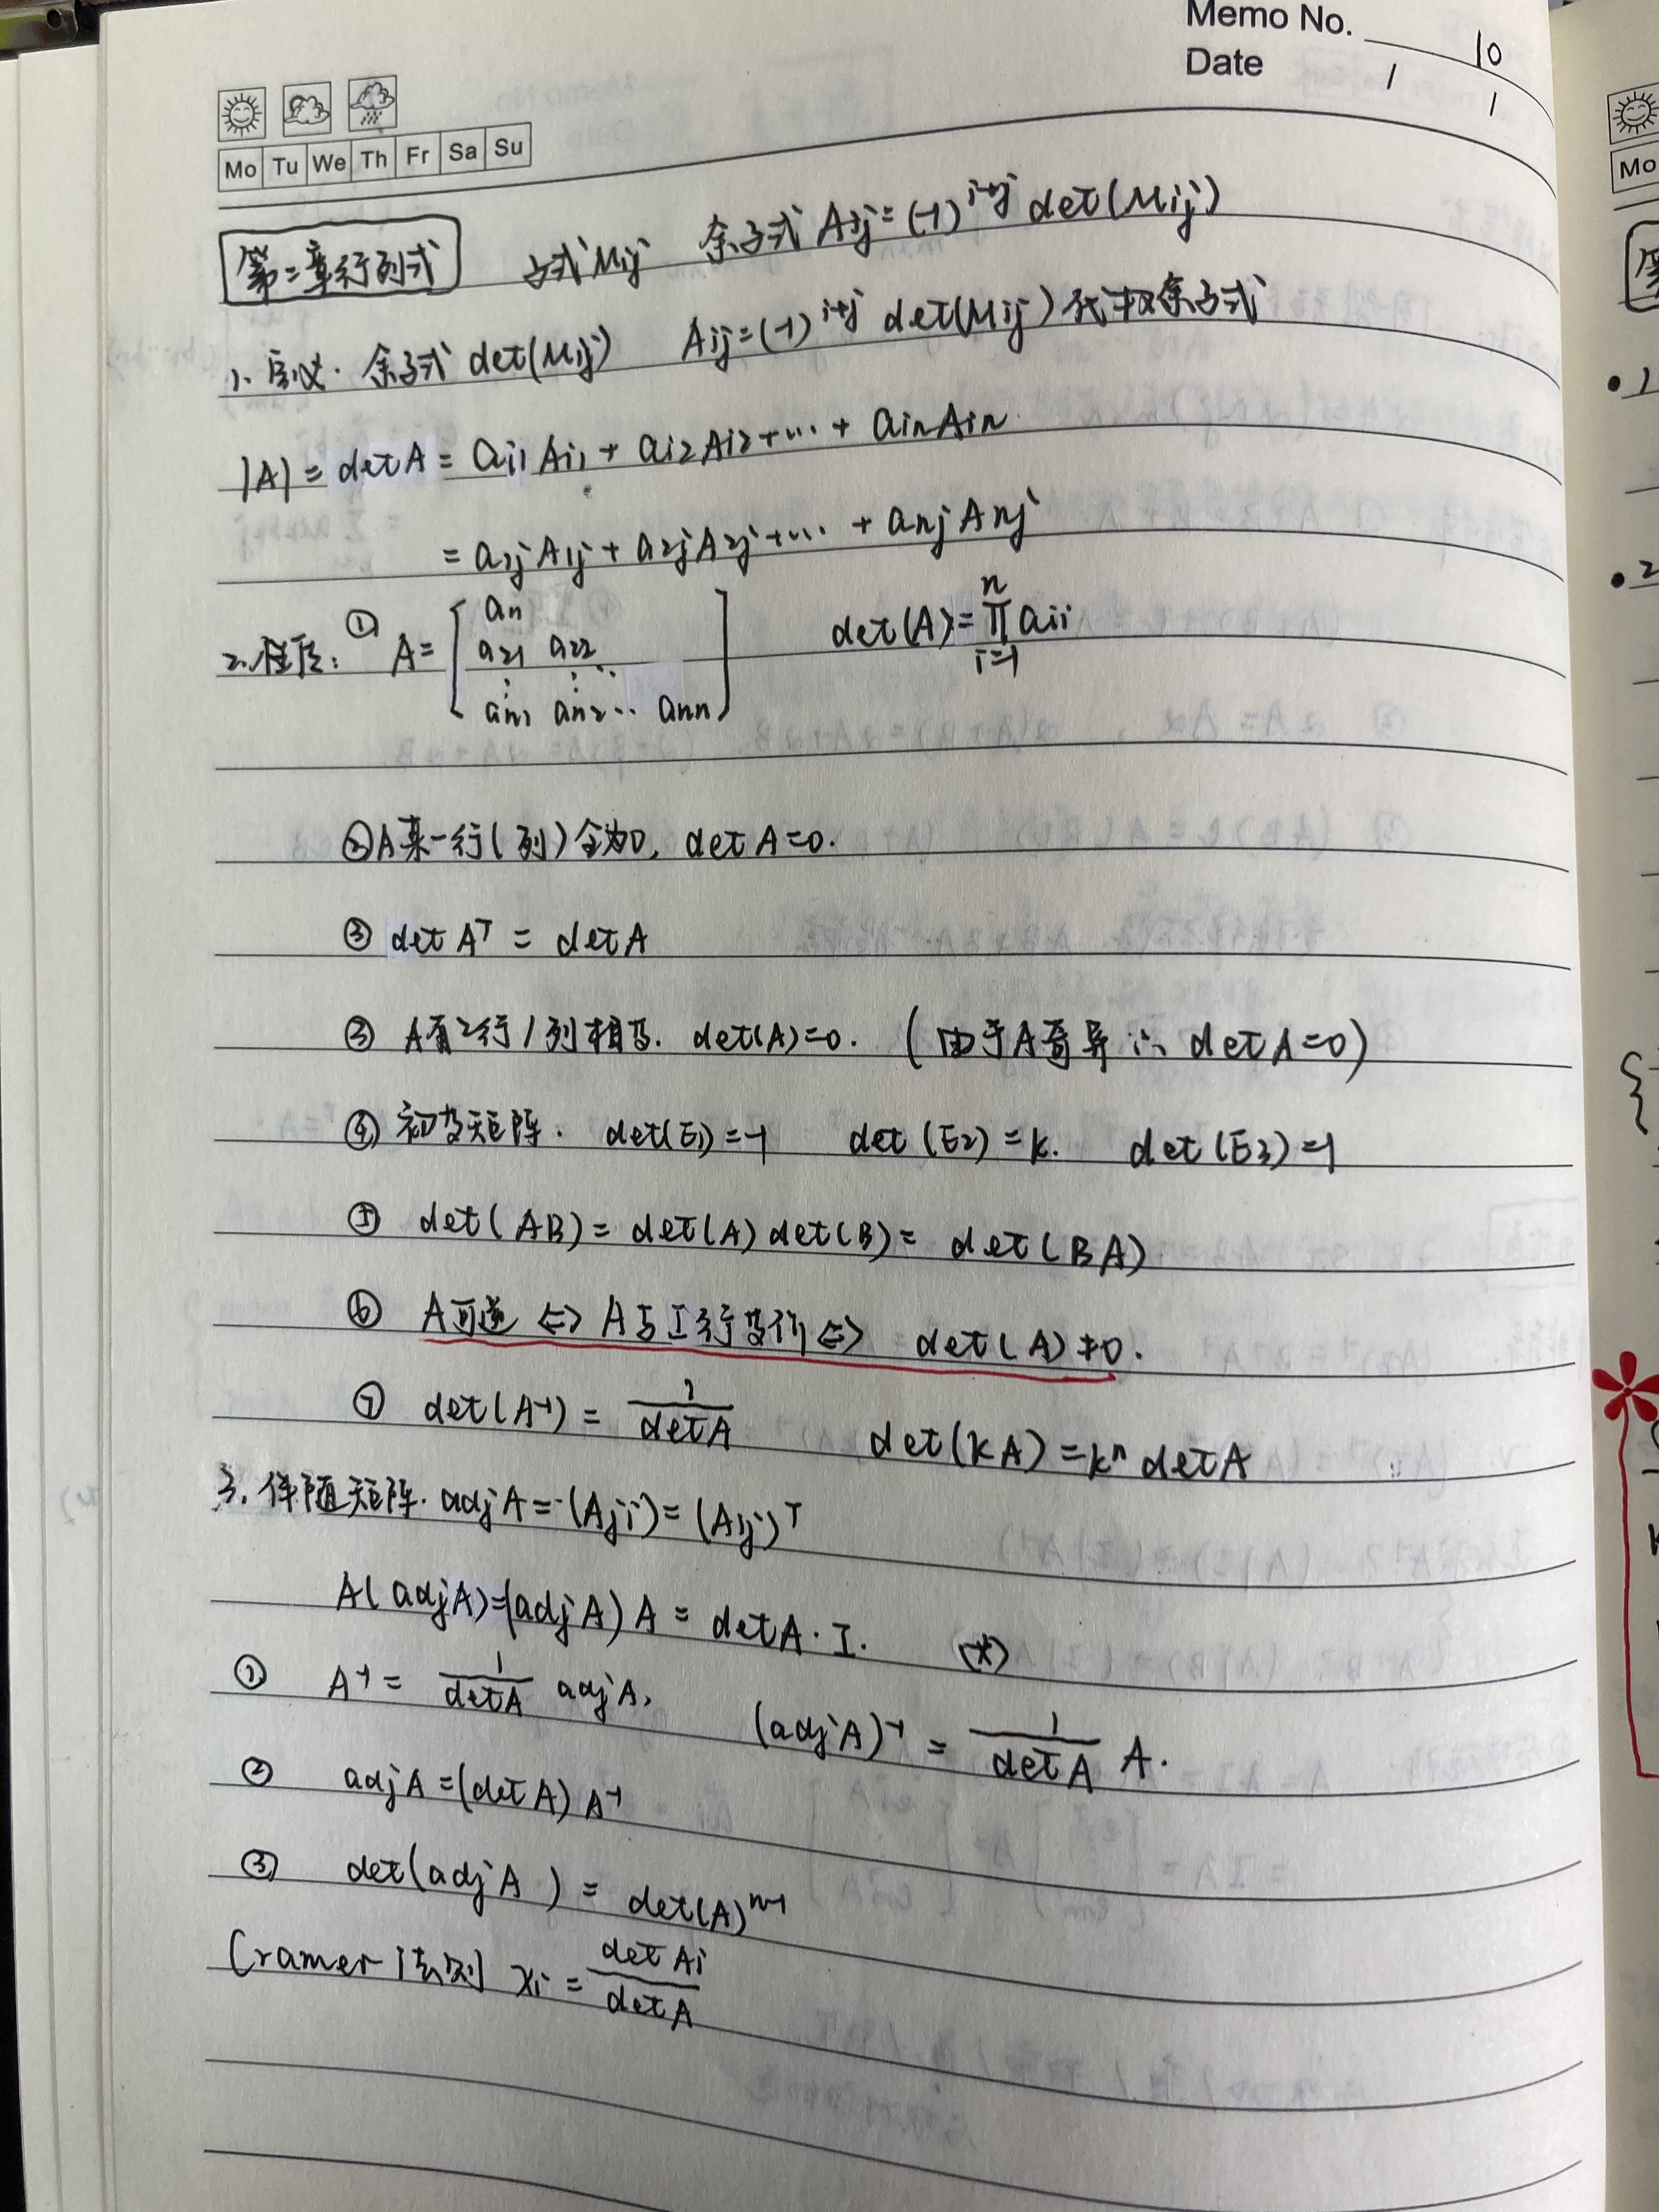 Memo No. 10
Date / /
Mo Tu We Th Fr Sa Su
第二章行列式 子式Mij 余子式 Aij=(-1)^{i+j} det(Mij)
1. 定义. 余子式 det(Mij) Aij=(-1)^{i+j} det(Mij) 代数余子式
|A|=detA=ai1Ai1+ai2Ai2+…+ainAin
=a1jA1j+a2jA2j+…+anjAnj
2.性质: ① A=[a11
a21 a22
⋮ ⋮ ⋱
an1 an2 … ann] det(A)=∏_{i=1}^{n} aii
②A某一行(列)全为0, detA=0.
③ detA^T = detA
③ A有2行/列相等. det(A)=0. (由于A奇异 ∴ detA=0)
④ 初等矩阵. det(E1)=-1 det(E2)=k. det(E3)=1
⑤ det(AB)=det(A)det(B)=det(BA)
⑥ A可逆 ⇔ A与I行等价 ⇔ det(A)≠0.
⑦ det(A^{-1})=1/detA det(kA)=k^n detA
3. 伴随矩阵. adjA=(Aji)=(Aij)^T
A(adjA)=(adjA)A=detA·I. (*)
① A^{-1}=1/detA adjA, (adjA)^{-1}=1/detA A.
② adjA=(detA)A^{-1}
③ det(adjA)=det(A)^{n-1}
Cramer法则 xi=detAi/detA
Mo